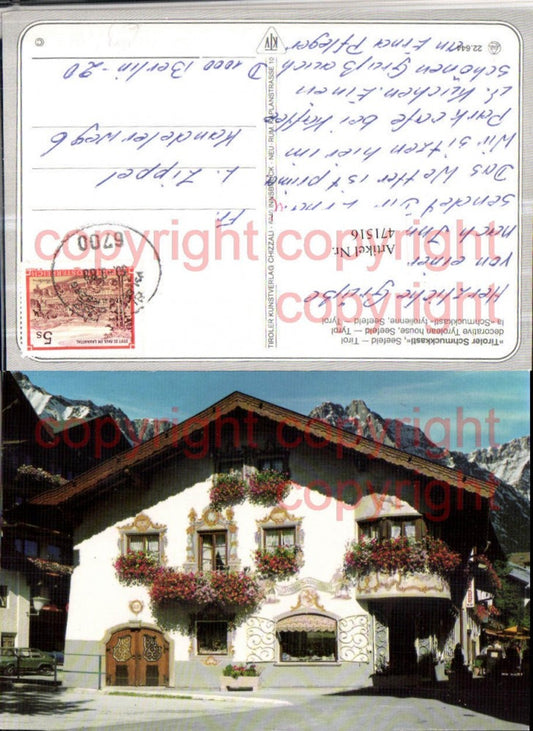 »Tiroler Schmuckkastl«, Seefeld — Tirol
decorative Tyrolean house, Seefeld — Tyrol
la »Schmuckkastl tyrolienne, Seefeld — Tyrol
Herzliche Grüße
von einer
nach Inn
sendet Dir
Das Wetter ist prima
Wir sitzen hier im
Parkcafe bei Kaffee
u. Kuchen. Einen
schönen Gruß auch
an
Artikel Nr.
471516
TIROLER KUNSTVERLAG CHIZZALI · INNSBRUCK · NEU-RUM KAPLANSTRASSE 10
22.64
5s
6700
Fr.
L. Zippel
Kandelerweg 6
D 1000 Berlin-20
copyright copyright
copyright copyright
copyright copyright
copyright copyright